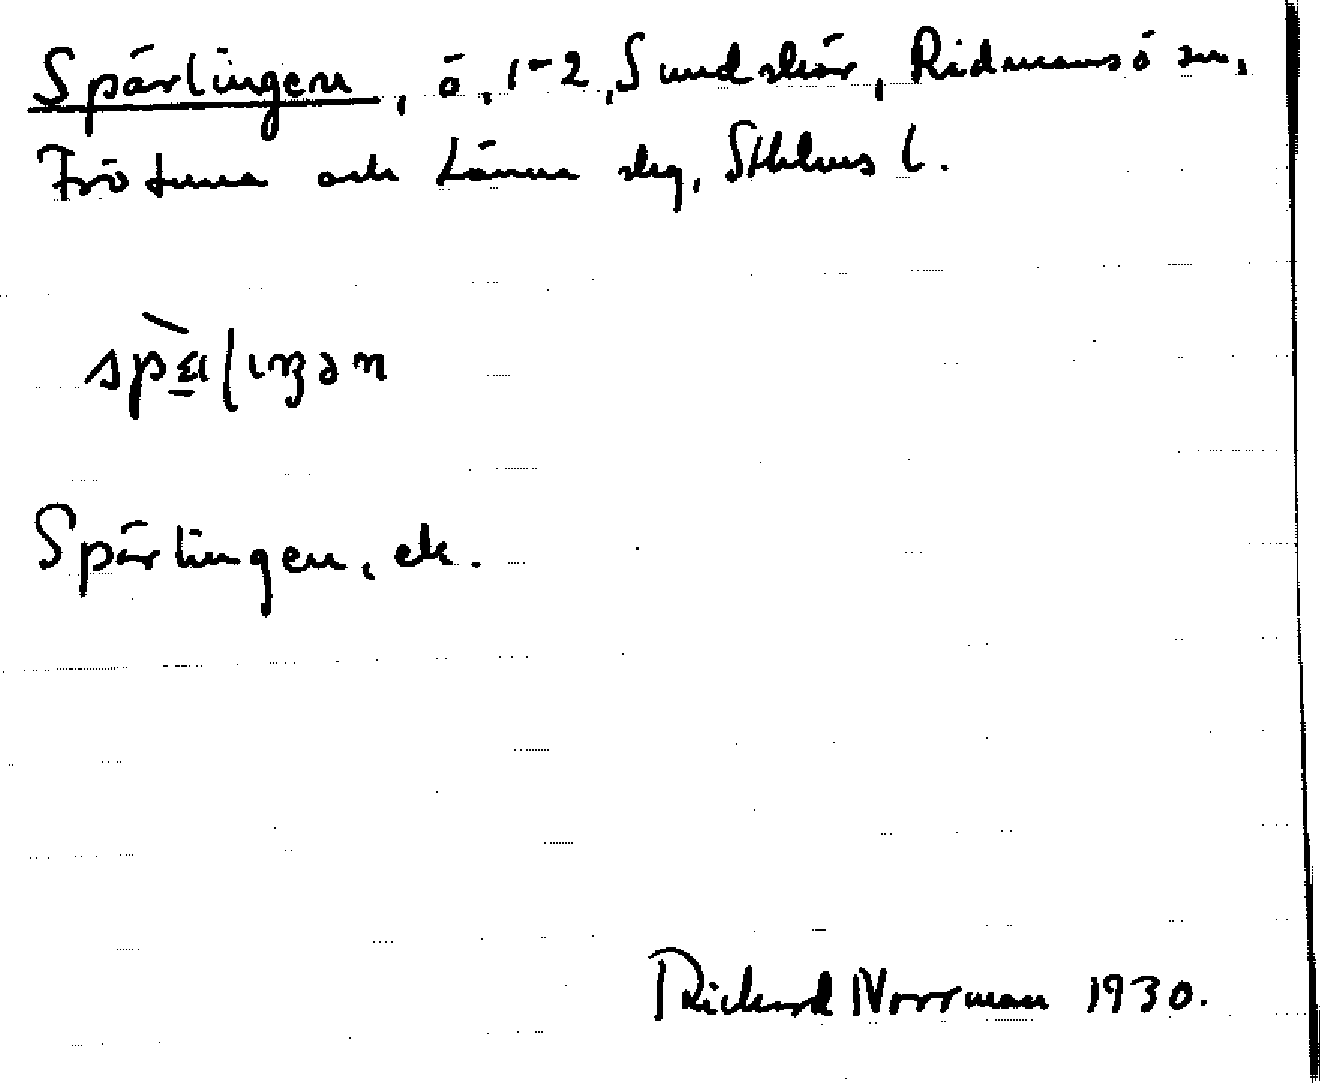 Spärlingen, ö, 1-2, Sundskär, Rådmansö sn,
Frötuna och Länna slg, Sthlms l.
spæ̀lıŋən
Spärlingen, ek.
Rickard Norrman 1930.